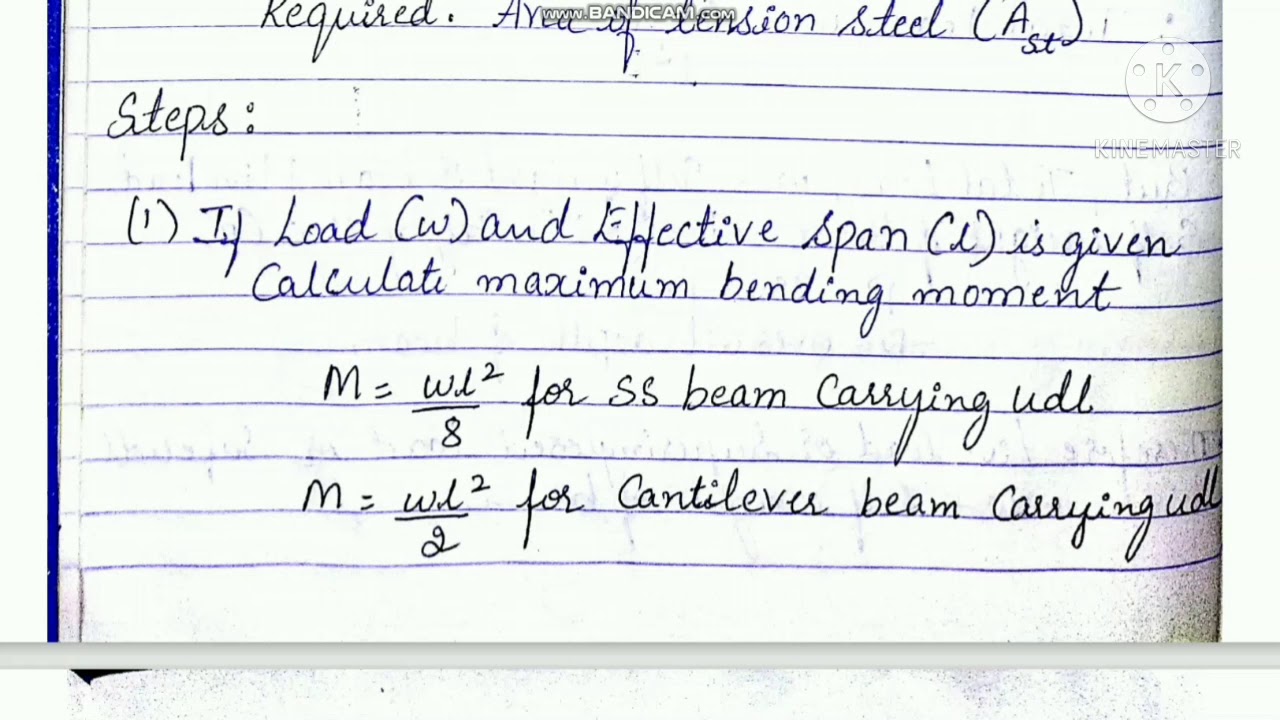 www.BANDICAM.com
Required. Area of tension steel (Ast).
K
KINEMASTER
Steps:
(1) If Load (w) and Effective span (l) is given
Calculate maximum bending moment
M = wl²/8 for SS beam Carrying udl
M = wl²/2 for Cantilever beam Carrying udl